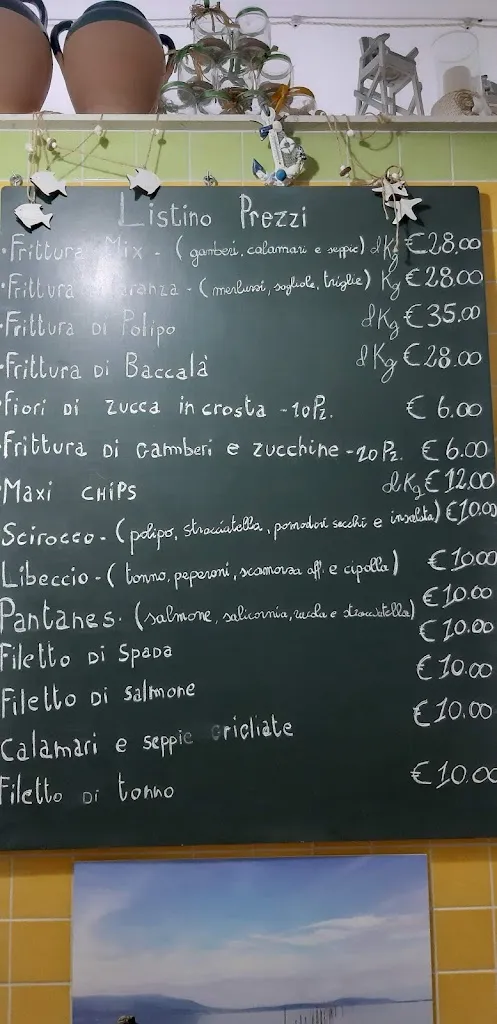 Listino Prezzi
• Frittura Mix - (gamberi, calamari e seppie) al Kg € 28.00
• Frittura Paranza - (merluzzi, sogliole, triglie) Kg € 28.00
• Frittura Di Polipo al Kg € 35.00
• Frittura Di Baccalà al Kg € 28.00
Fiori Di zucca in crosta - 10 Pz. € 6.00
Frittura Di Gamberi e zucchine - 20 Pz. € 6.00
• Maxi CHiPs al Kg € 12.00
Scirocco - (polipo, stracciatella, pomodori secchi e insalata) € 10.00
Libeccio - (tonno, peperoni, scamorza aff. e cipolla) € 10.00
Pantanes. (salmone, salicornia, rucola e stracciatella) € 10.00
Filetto Di Spada € 10.00
Filetto Di Salmone € 10.00
Calamari e seppie Grigliate € 10.00
Filetto Di tonno € 10.00